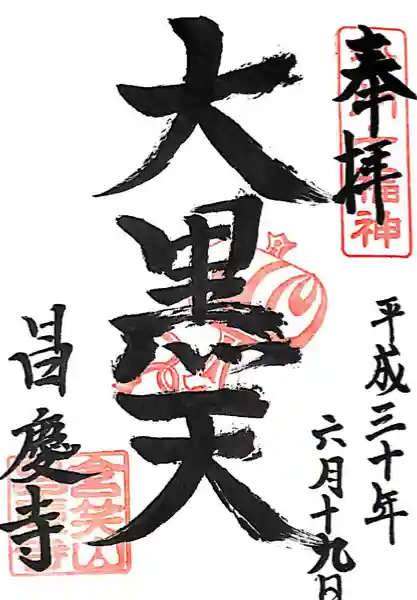 奉拝
福神
平成三十年
六月十九日
大黒天
昌慶寺
含笑山